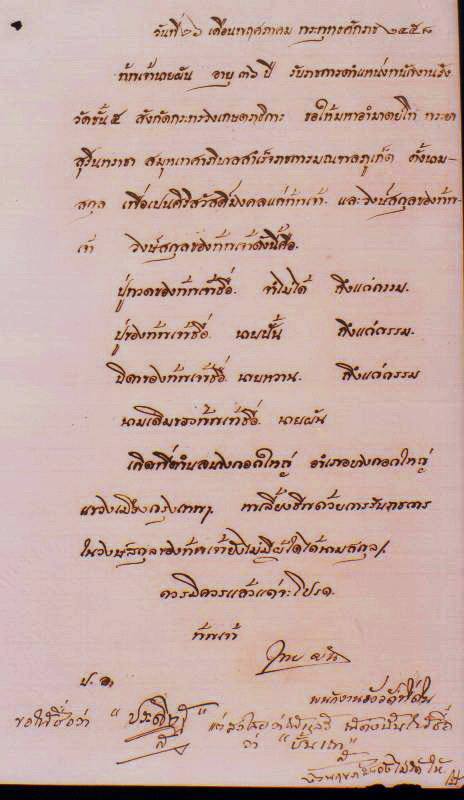 วันที่ ๒๖ เดือนพฤศภาคม พระพุทธศักราช ๒๔๕๘
ข้าพเจ้านายผัน อายุ ๓๖ ปี รับราชการตำแหน่งพนักงานรัง
วัดชั้น ๕ สังกัดกระทรวงเกษตราธิการ ขอให้มหาอำมาตย์โท พระยา
สุรินทราชา สมุหเทศาภิบาลสำเร็จราชการมณฑลภูเก็ต ตั้งนาม-
สกุล เพื่อเปนศิริสวัสดิ์มงคลแก่ข้าพเจ้า และวงษ์สกุลของข้าพ-
เจ้า วงษ์สกุลของข้าพเจ้าดังนี้คือ
ปู่ทวดของข้าพเจ้าชื่อ จำไม่ได้ ถึงแก่กรรม
ปู่ของข้าพเจ้าชื่อ นายปั้น ถึงแก่กรรม
บิดาของข้าพเจ้าชื่อ นายหวาน ถึงแก่กรรม
นามเดิมของข้าพเจ้าชื่อ นายผัน
เกิดที่ตำบลบางกอกใหญ่ อำเภอบางกอกใหญ่
แขวงเมืองกรุงเทพฯ หาเลี้ยงชีพด้วยการรับราชการ
ในวงษ์สกุลของข้าพเจ้ายังไม่มีผู้ใดได้นามสกุล
ควรมิควรแล้วแต่จะโปรด
ข้าพเจ้า
นาย ผัน
พนักงานรังวัดที่ดิน
ขอให้ชื่อว่า
ว่า